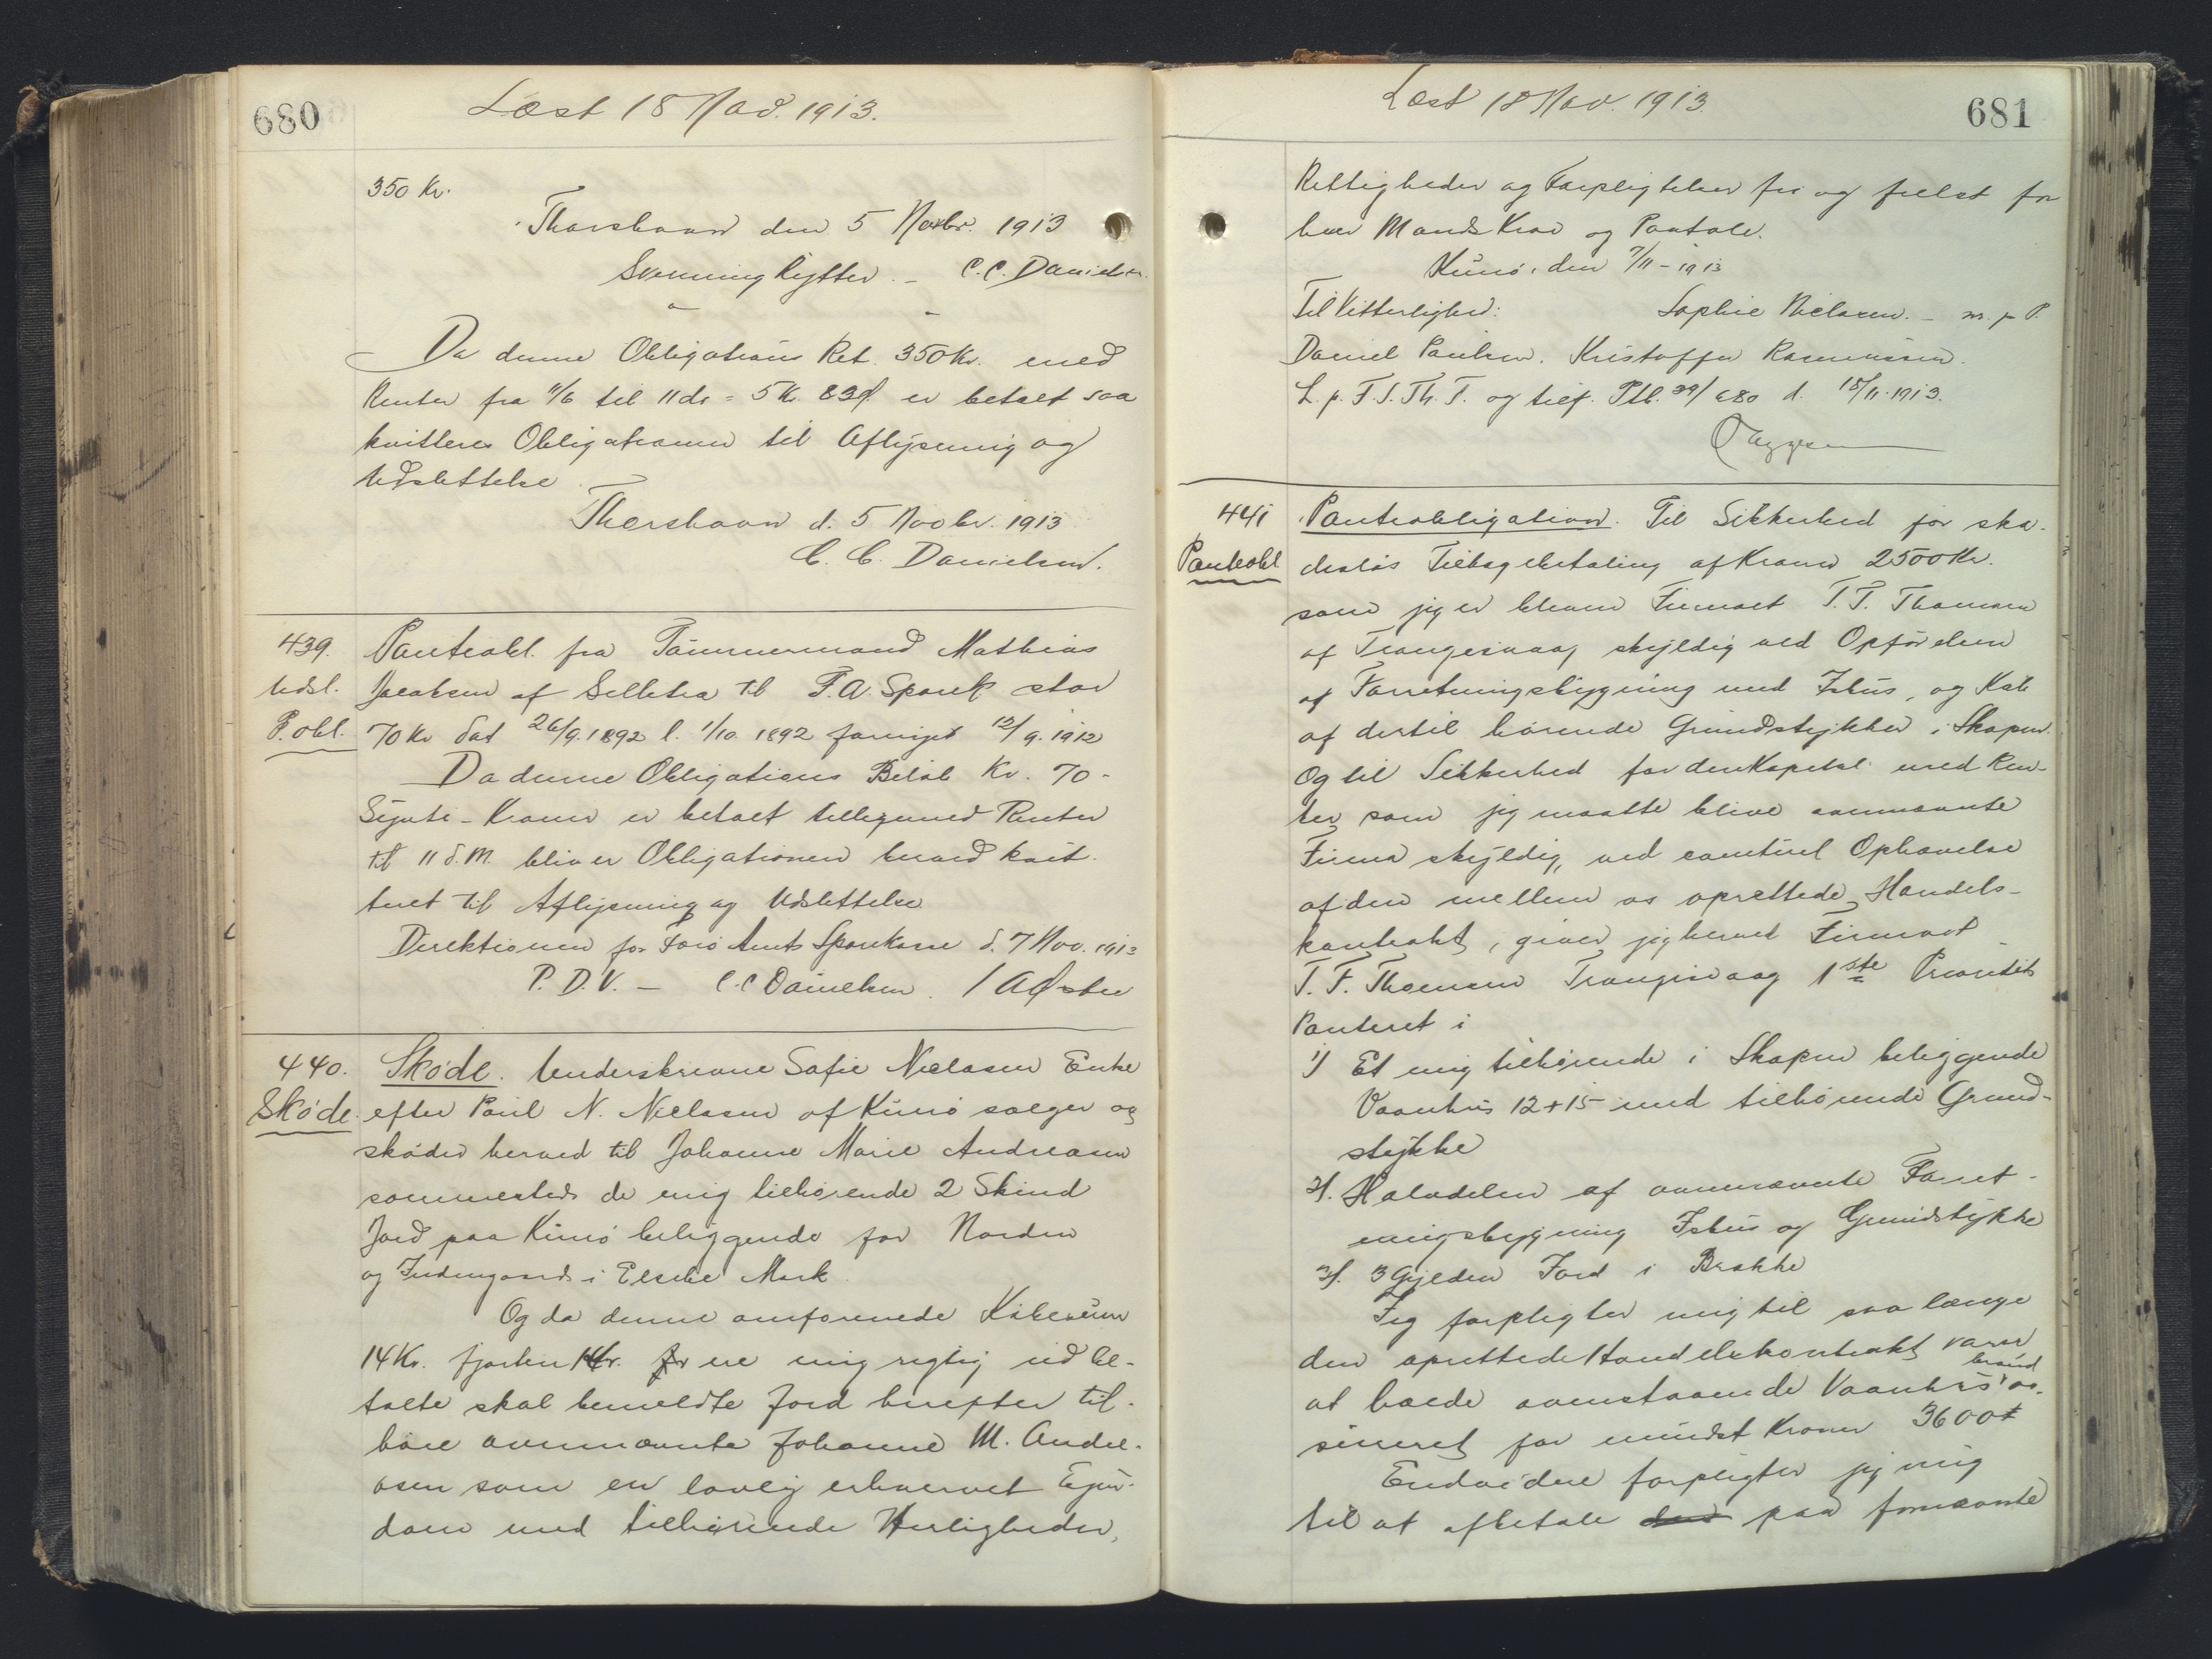 680
Læst 18 Nov. 1913.
350 Kr.
Thorshavn den 5 Novbr. 1913
Svenning Rytter. – C. C. Danielsen.
Da denne Obligations Ret. 350 Kr. med
Renter fra 11/6 til 11 ds = 5 Kr. 83 Ø. er betalt saa
kvitteres Obligationen til Aflysning og
Udslettelse.
Thorshavn d. 5 Novbr. 1913
C. C. Danielsen.
439.
Udsl.
P. obl.
Panteobl. fra Tømmermand Mathias
Jacobsen af Selletra til F. A. Spark stor
70 Kr dat 26/9. 1892 l. 1/10 1892 fornyet 12/9. 1912
Da denne Obligations Beløb Kr. 70 -
Sÿvti - Kroner er betalt tilligemed Renter
til 11 d. M. bliver Obligationen herved kvit-
teret til Aflysning og Udslettelse.
Direktionen for Færø Amts Sparekasse d. 7 Nov. 1913
P. D. V. – C. C. Danielsen. / A Østen
440.
Skøde.
Skøde. Underskrevne Safie Nielasen Enke
efter Poul N. Nielasen af Kunø sælger og
skøder herved til Johanne Marie Andreasen
sammesteds de mig tilhørende 2 Skind
Jord paa Kunø beliggende for Norden
og Indengaards i Elsebe Mark.
Og da denne omforenede Købesum
14 Kr. fjorten Kr. ere mig rigtig udbe-
talte skal bemeldte Jord herefter til-
høre ovennævnte Johanne M. Andre-
asen som en lovlig erhvervet Ejen-
dom med tilhørende Herligheder,
681
Læst 18 Nov. 1913.
Rettigheder og Forpligtelser fri og frelst for
hver Mands Krav og Paatale.
Kunø, den 7/11 - 1913
Til Vitterlighed: Sophie Nielasen. – m. p. P.
Daniel Paulsen. Kristoffer Rasmussen.
L. p. F. S. Th. T. og tilf. Ptb. 39/680 d. 18/11. 1913.
441
Panteobl
Panteobligation. Til Sikkerhed for ska-
desløs Tilbagebetaling af Kroner 2500 Kr.
som jeg er bleven Firmaet T. F. Thomsen
af Trangisvaag skyldig ved Opførelsen
af Forretningsbygning med Ishus, og Køb
af dertil hørende Grundstykker i Skapun.
Og til Sikkerhed for den Kapital med Ren-
ter som jeg maatte blive ovennævnte
Firma skyldig, ved eventuel Ophævelse
af den mellem os oprettede Handels-
kontrakt, giver jeg herved Firmaet
T. F. Thomsen Trangisvaag 1ste Prioritets
Panteret i
1) Et mig tilhørende i Skapun beliggende
Vaanhus 12 + 15 med tilhørende Grund-
stykke
2). Halvdelen af ovennævnte Forret-
ningsbygning Ishus og Grundstykke
3). 3 Gylden Jord i Brakke
Jeg forpligter mig til saa længe
den oprettede Handelskontrakt varer
at holde ovenstaaende Vaanhus brand as-
sureret for mindst Kroner 3600
Endvidere forpligter jeg mig
til at afbetale den paa fornævnte